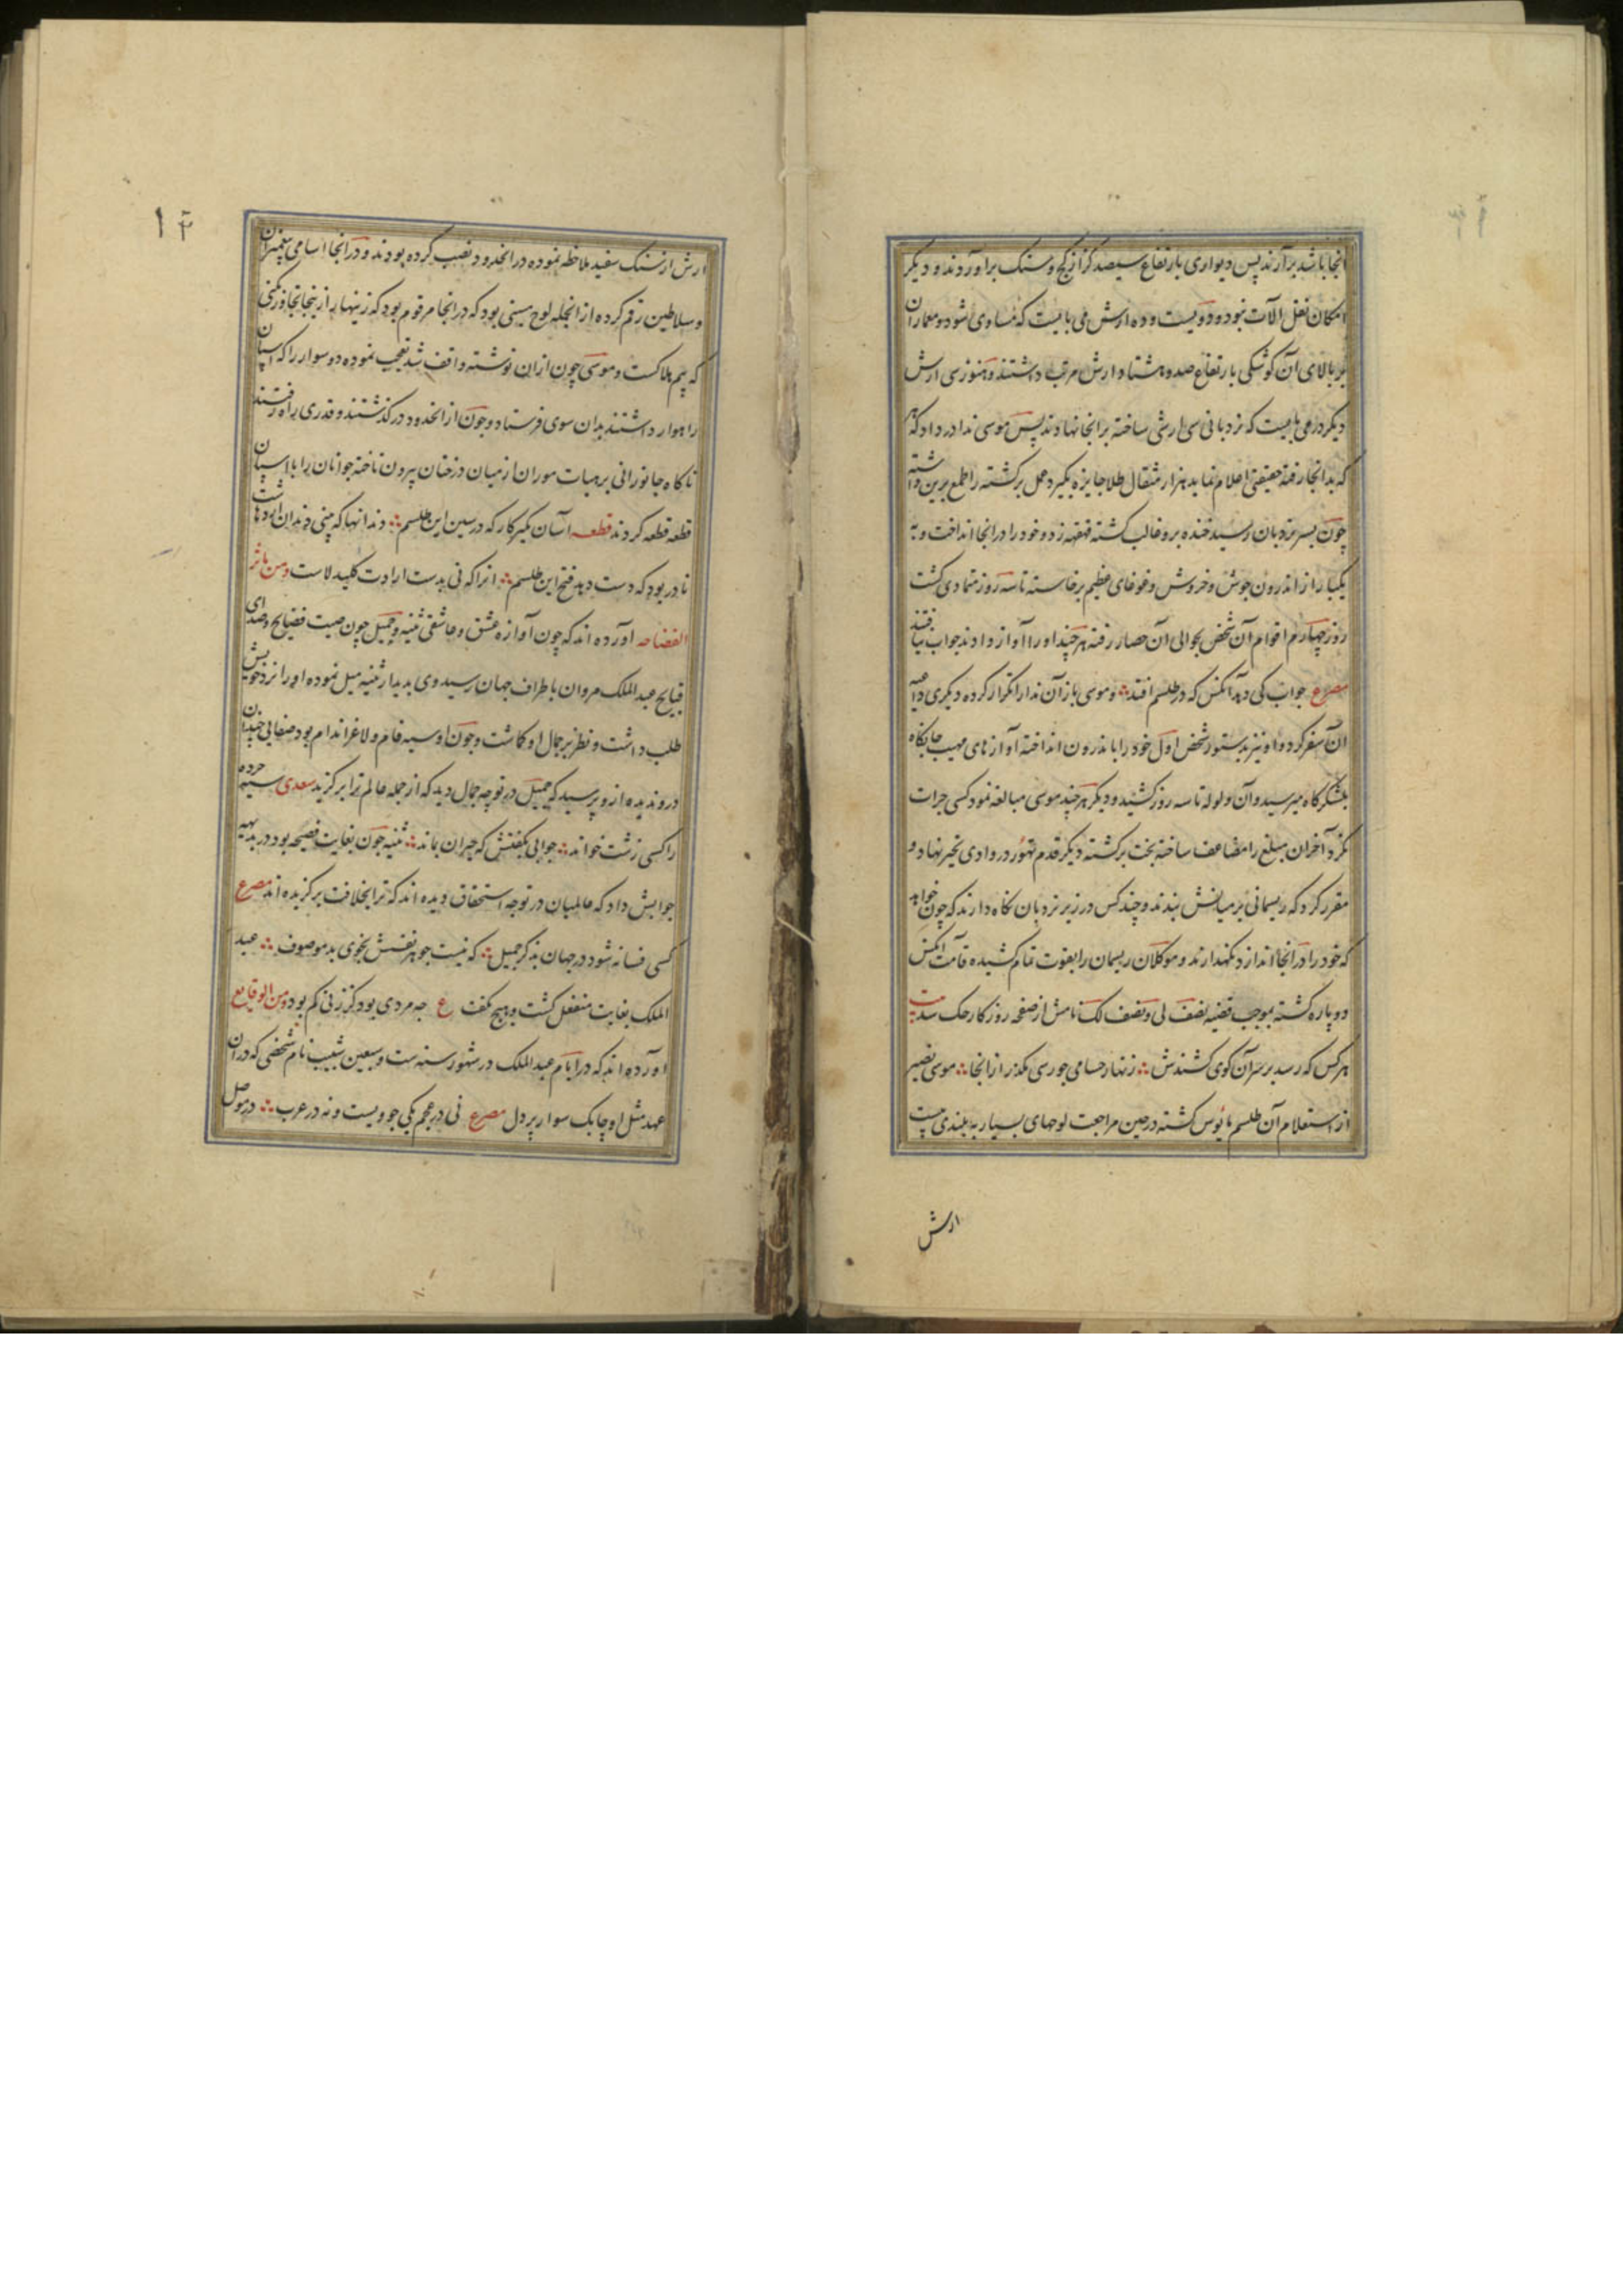 انجا باشد برآرند پس دیواری بارتفاع سیصد کز از کج و سنک براوردند و دیکر
امکان نقل آلات نبود و دویست و ده ارش می بایست که مساوی شود و معماران
بر بالای آن کوشکی بارتفاع صد و هشتاد ارش مرتب داشتند و هنوز سی ارش
دیکر درمی بایست که نردبانی سی ارشی ساخته برانجا نهادند پس موسی ندا درداد که هر
که بدانجا رفته حقیقتی اعلام نماید هزار مثقال طلا جایزه بکیرد عمل برکشته را طمع برین داشته
چون بسر نردبان رسید خنده برو غالب کشته قهقهه زد و خود را درانجا انداخت و به
یکبار از اندرون جوش و خروش و غوغای عظیم برخاسته تا سه روز متمادی کشت
روز چهارم اقوام آن شخص بحوالی آن حصار رفته هر چند او را آواز دادند جواب نیافتند
مصرع جواب کی دهد آنکس که در طلسم افتد و موسی باز آن ندا را تکرار کرده دیکری داعیه
آن سفر کرد و او نیز بدستور شخص اول خود را باندرون انداخته آوازهای مهیب جایکاه
بلشکرکاه میرسید و آن ولوله تا سه روز کشید و دیکر هر چند موسی مبالغه نمود کسی جرات
نکرد آخر آن مبلغ را مضاعف ساخته بخت برکشته دیکر قدم تهور در وادی تحیر نهاد و
مقرر کرد که ریسمانی بر میانش بندند و چند کس در زیر نردبان نکاه دارند که چون خواهد
که خود را درانجا اندازد نکهدارند و موکلان ریسمان را بقوت تمام کشیده قامت آنکس
دو پاره کشته بموجب قضیه نصف لی و نصف لک نامش از صفحه روزکار حک شد بیت
هر کس که رسد بر سر آن کوی کشندش زنهار حسامی چو رسی بکذر از انجا موسی نصیر
از استعلام آن طلسم مایوس کشته در حین مراجعت لوحهای بسیار به بلندی بیست
ارش
۱۴
ارش از سنک سفید ملاحظه نموده در اخدود نصب کرده بودند و درانجا اسامی پیغمبران
و سلاطین رقم کرده از انجمله لوح مسینی بود که درانجا مرقوم بود که زینهار از ینجا تجاوز نکنی
که بیم هلاکست و موسی چون ازان نوشته واقف شد تعجب نموده دو سوار را که اسپان
راهوار داشتند بدان سوی فرستاد و چون از اخدود درکذشتند و قدری راه رفتند
ناکاه جانورانی بر هیات موران از میان درختان بیرون تاخته جوانان را با اسپان
قطعه قطعه کردند قطعه آسان مکیر کار که در سین این طلسم دندانها که بینی دندان اژدهاست
نادر بود که دست دهد فتح این طلسم انرا که نی بدست ارادت کلید لاست و من ماثر
الفضاحه آورده اند که چون آوازه عشق و عاشقی ثنیه و جمیل چون صیت فضایح و صدای
قبایح عبدالملک مروان باطراف جهان رسید وی بدیدار ثنیه میل نموده او را نزد خویش
طلب داشت و نظر بر جمال او کماشت و چون او سیه فام و لاغر اندام بود صفایی چندان
درو ندیده ازو پرسید که جمیل در تو چه جمال دید که از جمله عالم ترا برکزید سعدی سیه چرده
را کسی زشت خواند جوابی بکفتش که حیران بماند ثنیه چون بغایت فصیحه بود در بدیهه
جوابش داد که عالمیان در تو چه استحقاق دیده اند که ترا بخلافت برکزیده اند مصرع
کسی فسانه شود در جهان بذکر جمیل که نیست جوهر نفسش بخوی بد موصوف عبد
الملک بغایت منفعل کشت و هیچ نکفت ع چه مردی بود کز زنی کم بود و من الوقایع
آورده اند که در ایام عبدالملک در شهور سنه ست و سبعین شبیب نام شخصی که دران
عهد مثل او چابک سوار پردل مصرع نی در عجم یکی چو ویست و نه در عرب در موصل